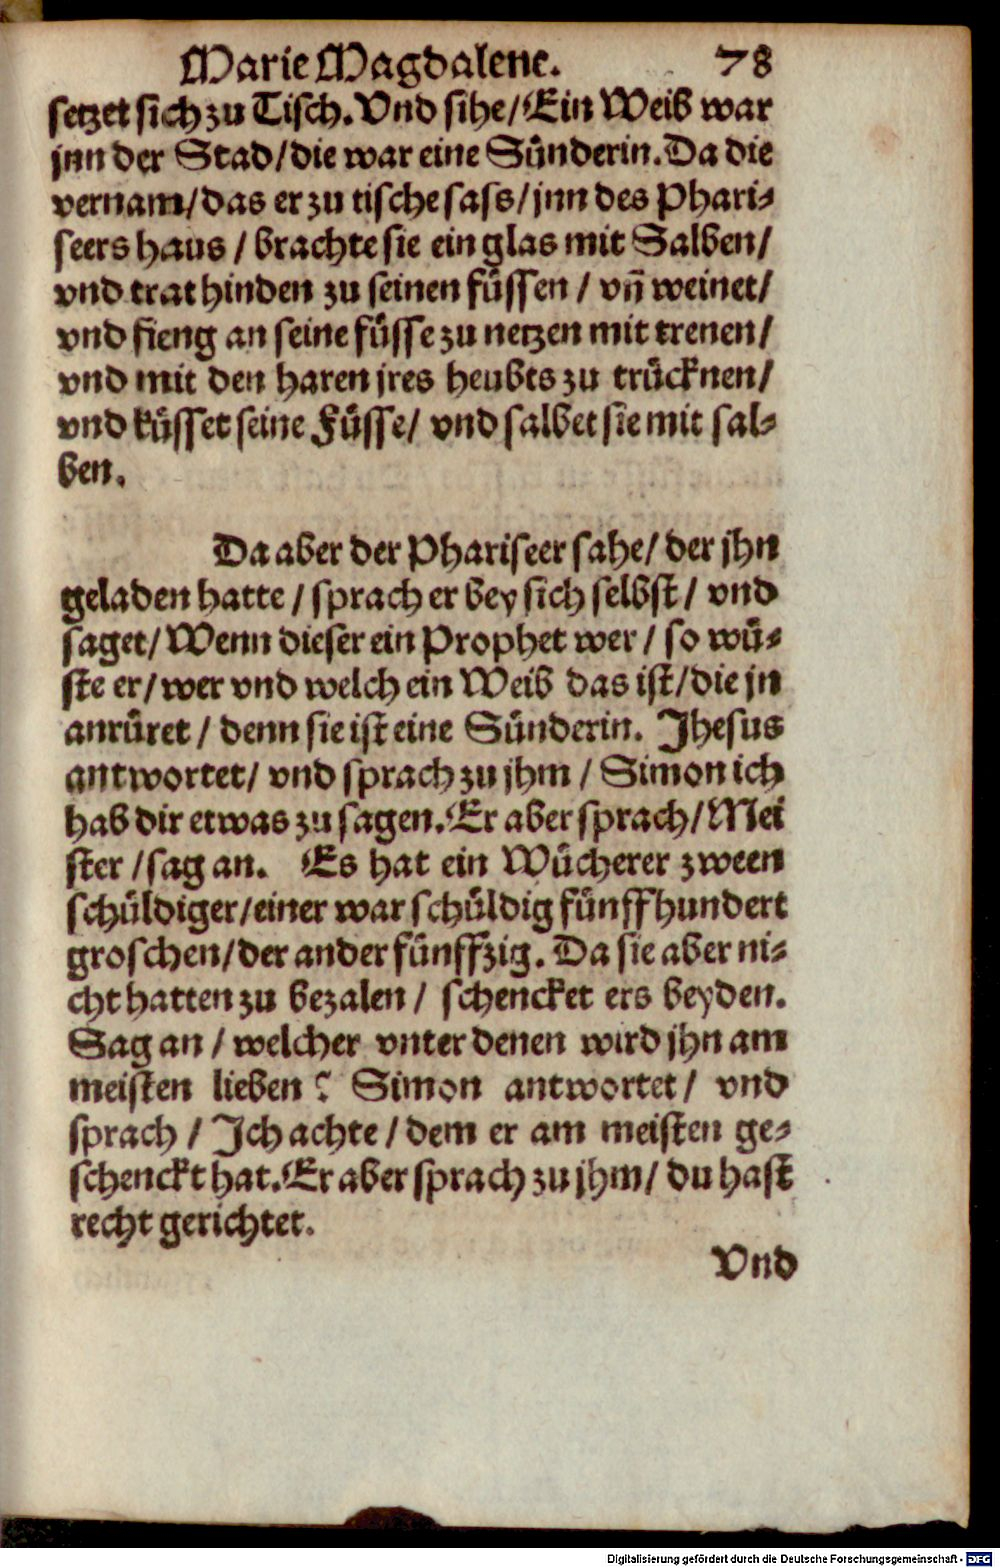 Marie Magdalene. 78
setzet sich zu Tisch. Vnd sihe / Ein Weib war
jnn der Stad / die war eine Sünderin. Da die
vernam / das er zu tische sass / jnn des Phari⸗
seers haus / brachte sie ein glas mit Salben /
vnd trat hinden zu seinen füssen / vñ weinet /
vnd fieng an seine füsse zu netzen mit trenen /
vnd mit den haren jres heubts zu trücknen /
vnd küsset seine Füsse / vnd salbet sie mit sal⸗
ben.
Da aber der Phariseer sahe / der jhn
geladen hatte / sprach er bey sich selbst / vnd
saget / Wenn dieser ein Prophet wer / so wü⸗
ste er / wer vnd welch ein Weib das ist / die jn
anrüret / denn sie ist eine Sünderin. Jhesus
antwortet / vnd sprach zu jhm / Simon ich
hab dir etwas zu sagen. Er aber sprach / Mei
ster / sag an. Es hat ein Wücherer zween
schüldiger / einer war schüldig fünffhundert
groschen / der ander fünffzig. Da sie aber ni⸗
cht hatten zu bezalen / schencket ers beyden.
Sag an / welcher vnter denen wird jhn am
meisten lieben? Simon antwortet / vnd
sprach / Ich achte / dem er am meisten ge⸗
schenckt hat. Er aber sprach zu jhm / du hast
recht gerichtet.
Vnd
Digitalisierung gefördert durch die Deutsche Forschungsgemeinschaft - DFG